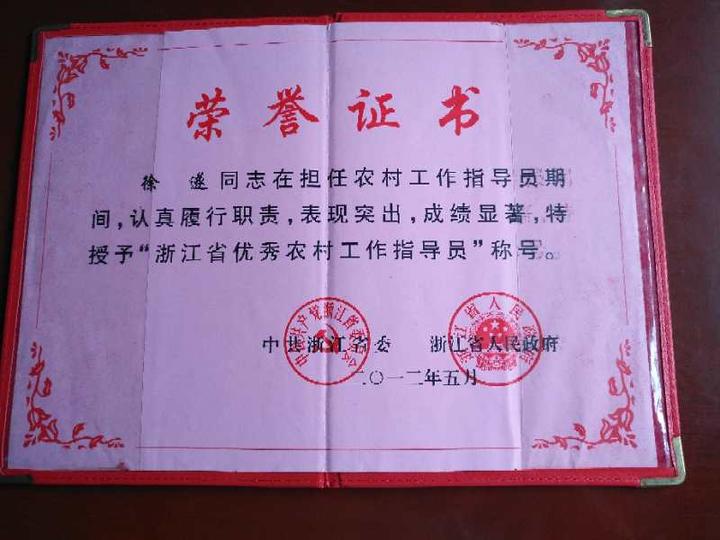 荣誉证书
徐 遂同志在担任农村工作指导员期
间,认真履行职责,表现突出,成绩显著,特
授予“浙江省优秀农村工作指导员”称号。
中共浙江省委 浙江省人民政府
二〇一二年五月
中国共产党浙江省委员会
浙江省人民政府